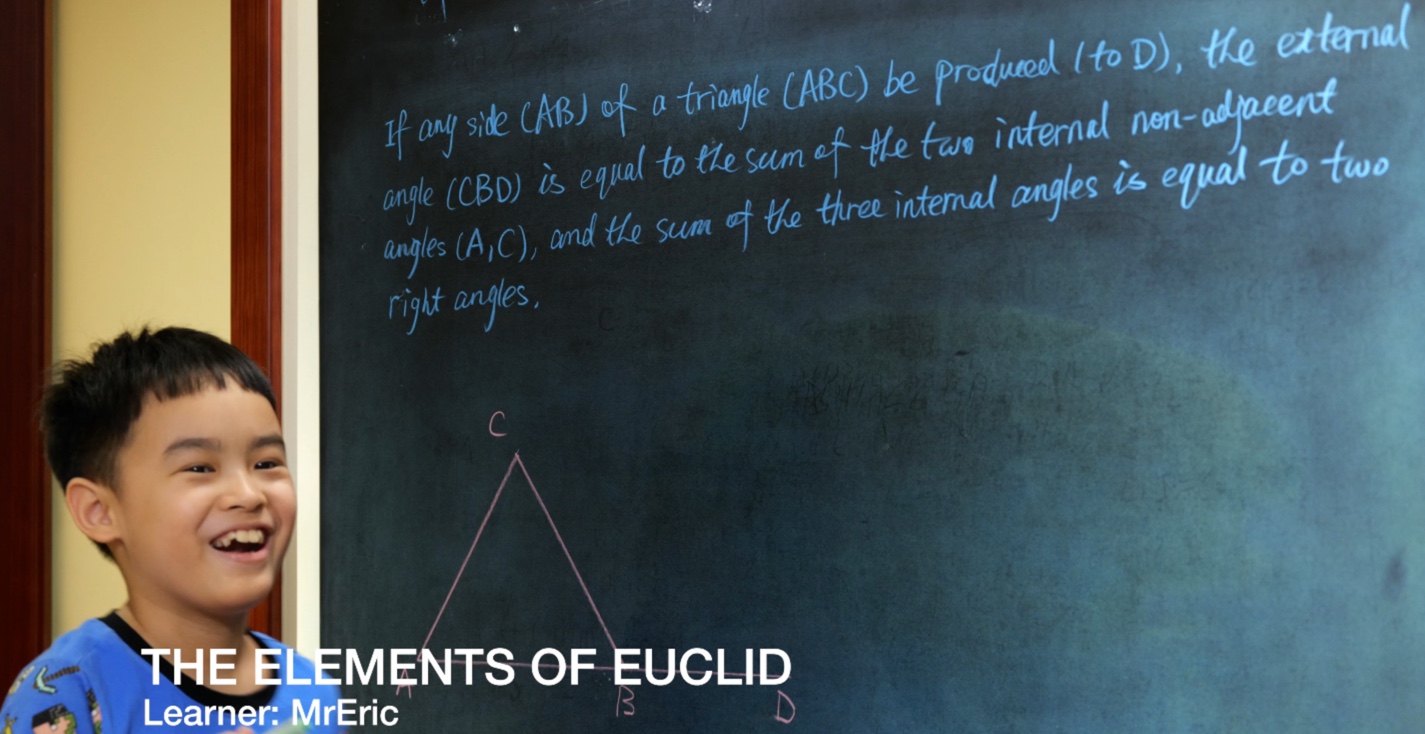 If any side (AB) of a triangle (ABC) be produced (to D), the external
angle (CBD) is equal to the sum of the two internal non-adjacent
angles (A,C), and the sum of the three internal angles is equal to two
right angles.
C
A
B
D
THE ELEMENTS OF EUCLID
Learner: MrEric